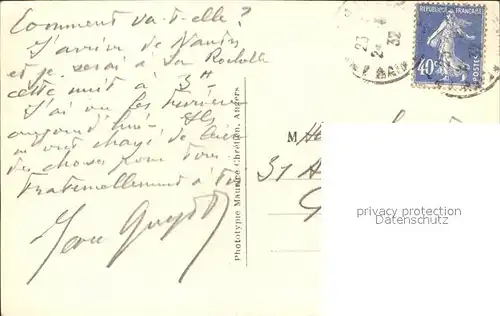 Comment va-t-elle?
J'arrive de Nantes
et je serai à La Rochelle
cette nuit à 3H
J'ai vu les
aujourd'hui. Ils
m'ont chargé de
des choses pour toi.
Fraternellement à Toi
Phototypie Maurice Chrétien, Angers
REPUBLIQUE FRANÇAISE
40c
POSTES
23
2
32
M
37 A
privacy protection
Datenschutz